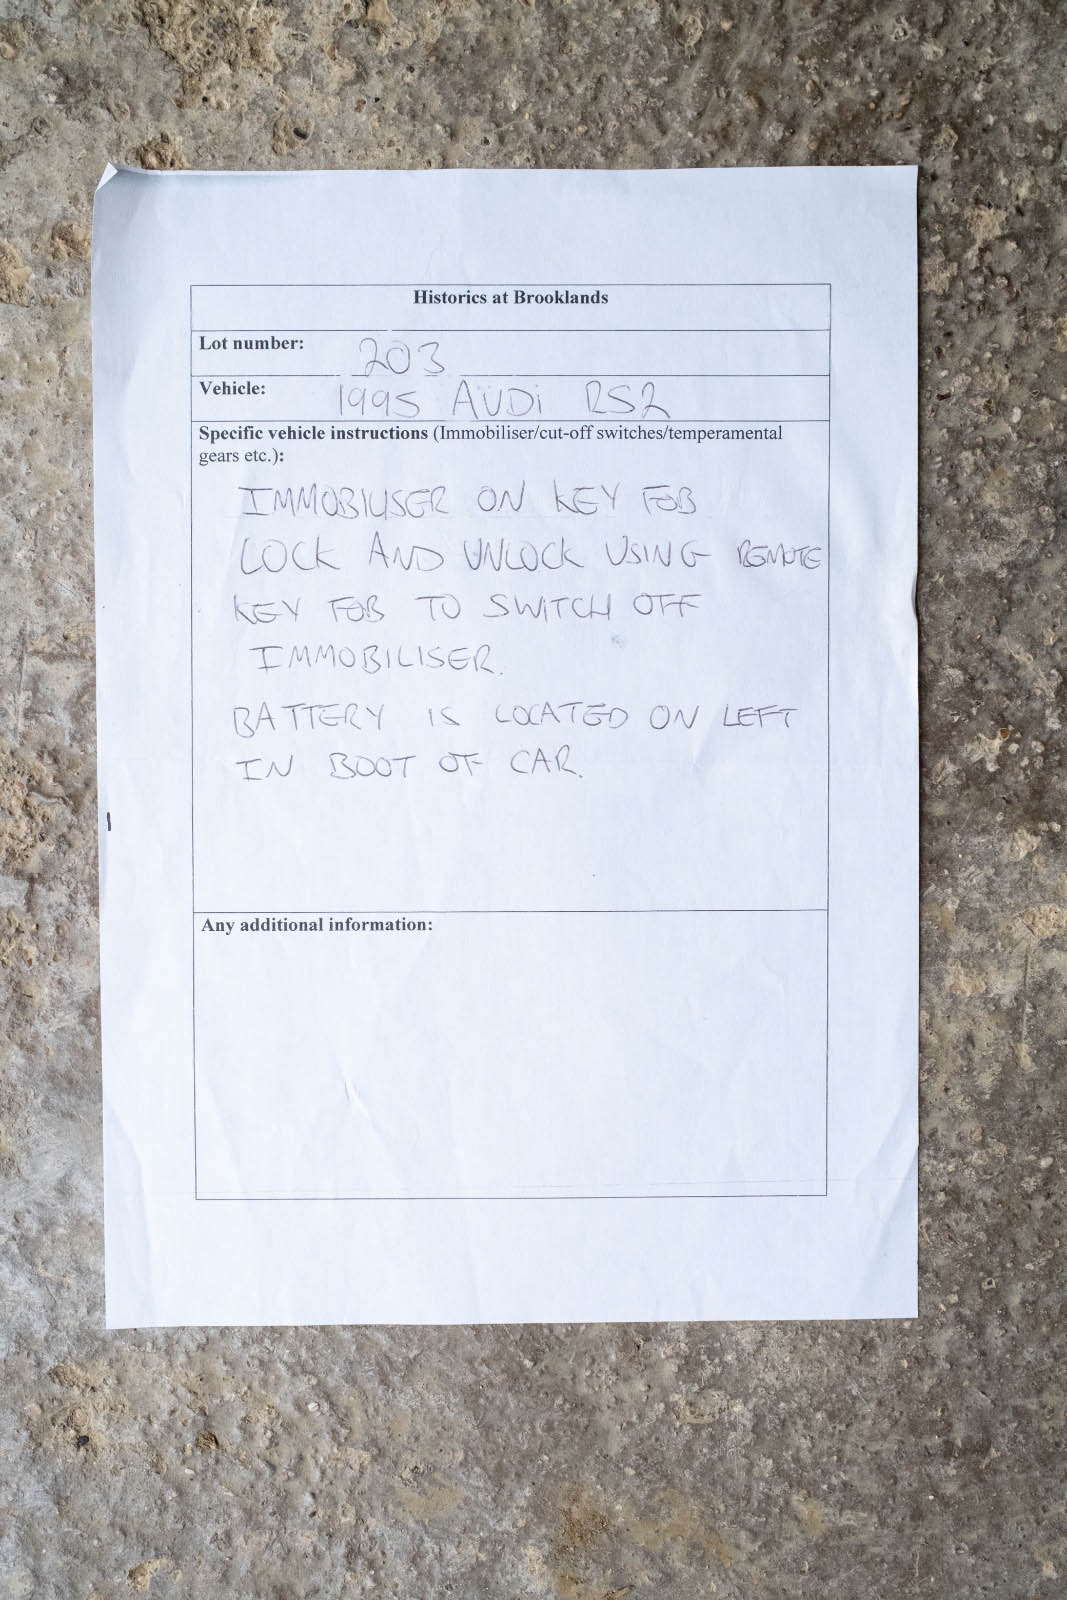 Historics at Brooklands
Lot number: 203
Vehicle: 1995 AUDi RS2
Specific vehicle instructions (Immobiliser/cut-off switches/temperamental
gears etc.):
IMMOBILISER ON KEY FOB
LOCK AND UNLOCK USING REMOTE
KEY FOB TO SWITCH OFF
IMMOBILISER.
BATTERY IS LOCATED ON LEFT
IN BOOT OF CAR.
Any additional information: